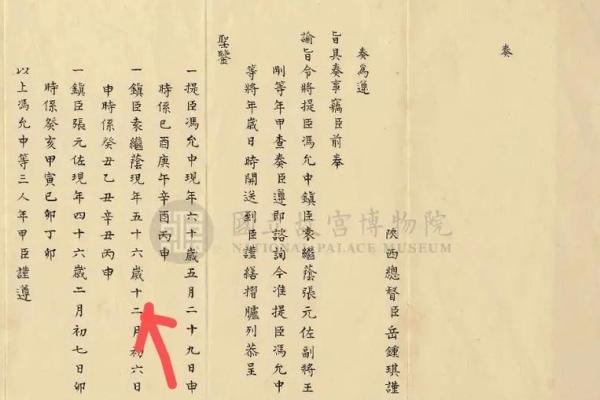 奏
陝西總督臣岳鍾琪謹
奏為遵
旨具奏事竊臣前奉
諭旨令將提臣馮允中鎮臣袁繼蔭張元佐副將王
剛等年甲查奏臣遵即諮詢今准提臣馮允中
等將年歲日時開送到臣謹繕摺臚列恭呈
聖鑒
一提臣馮允中現年六十歲五月二十九日申
時係己酉庚午辛酉丙申
一鎮臣袁繼蔭現年五十六歲十二月初六日
申時係癸丑乙丑辛丑丙申
一鎮臣張元佐現年四十六歲二月初七日卯
時係癸亥甲寅己卯丁卯
以上馮允中等三人年甲臣謹遵
國立故宮博物院
NATIONAL PALACE MUSEUM